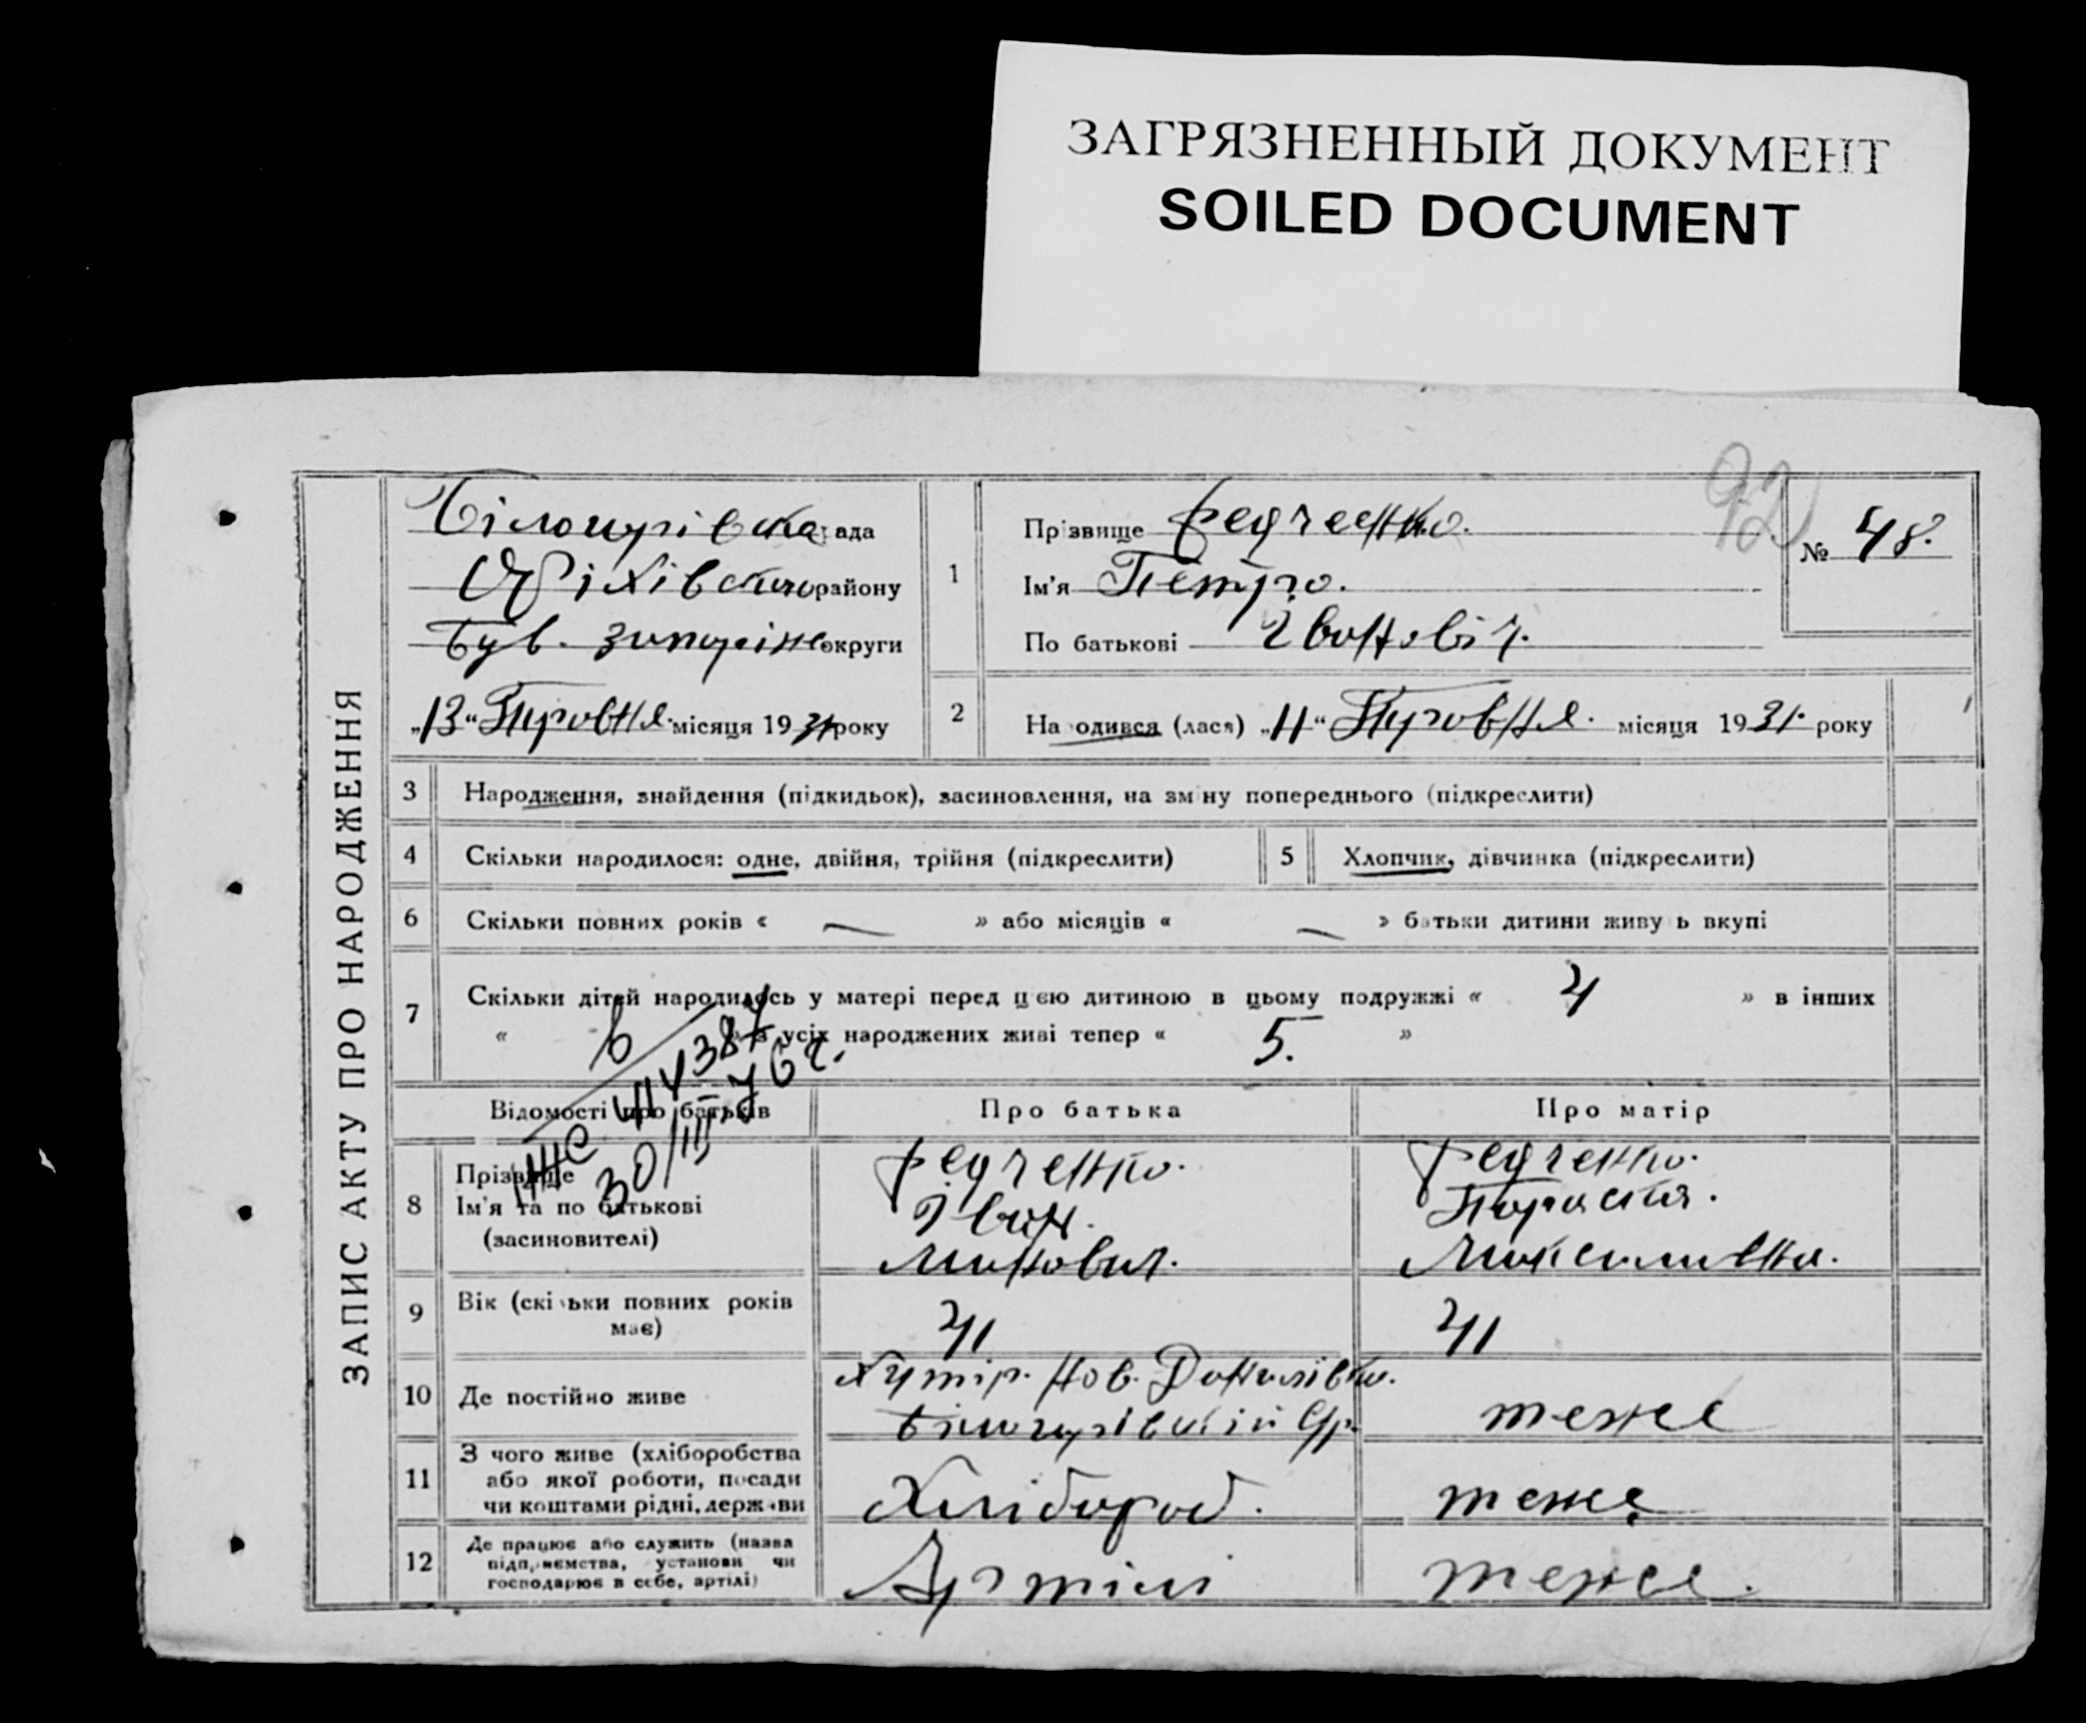 ЗАГРЯЗНЕННЫЙ ДОКУМЕНТ
SOILED DOCUMENT
92
ЗАПИС АКТУ ПРО НАРОДЖЕННЯ
Білогорівська рада
Оріхівського району
Був. Запоріж округи
„13“ Травня місяця 1931 року
1
Прізвище Федченко.
Ім'я Петро.
По батькові Іванович.
№ 48.
2
Народився (лася) „11“ Травня. місяця 1931. року
3 Народження, знайдення (підкидьок), засиновлення, на зміну попереднього (підкреслити)
4 Скільки народилося: одне, двійня, трійня (підкреслити)
5 Хлопчик, дівчинка (підкреслити)
6 Скільки повних років « — » або місяців « — » батьки дитини живуть вкупі
7 Скільки дітей народилось у матері перед цією дитиною в цьому подружжі « 4 » в інших
« » з усіх народжених живі тепер « 5. »
30/III-76 г.
Відомості про батьків Про батька Про матір
8 Прізвище Федченко. Федченко.
Ім'я та по батькові Іван. Параскя.
(засиновителі) Минович.
9 Вік (скільки повних років має) 41 41
10 Де постійно живе Хутір. Нов. Данилівка. теже
Білогорівській с/р.
11 З чого живе (хліборобства Хлібороб. теже
або якої роботи, посади
чи коштами рідні, держави
12 Де працює або служить (назва Артілі теже.
підприємства, установи чи
господарює в себе, артілі)